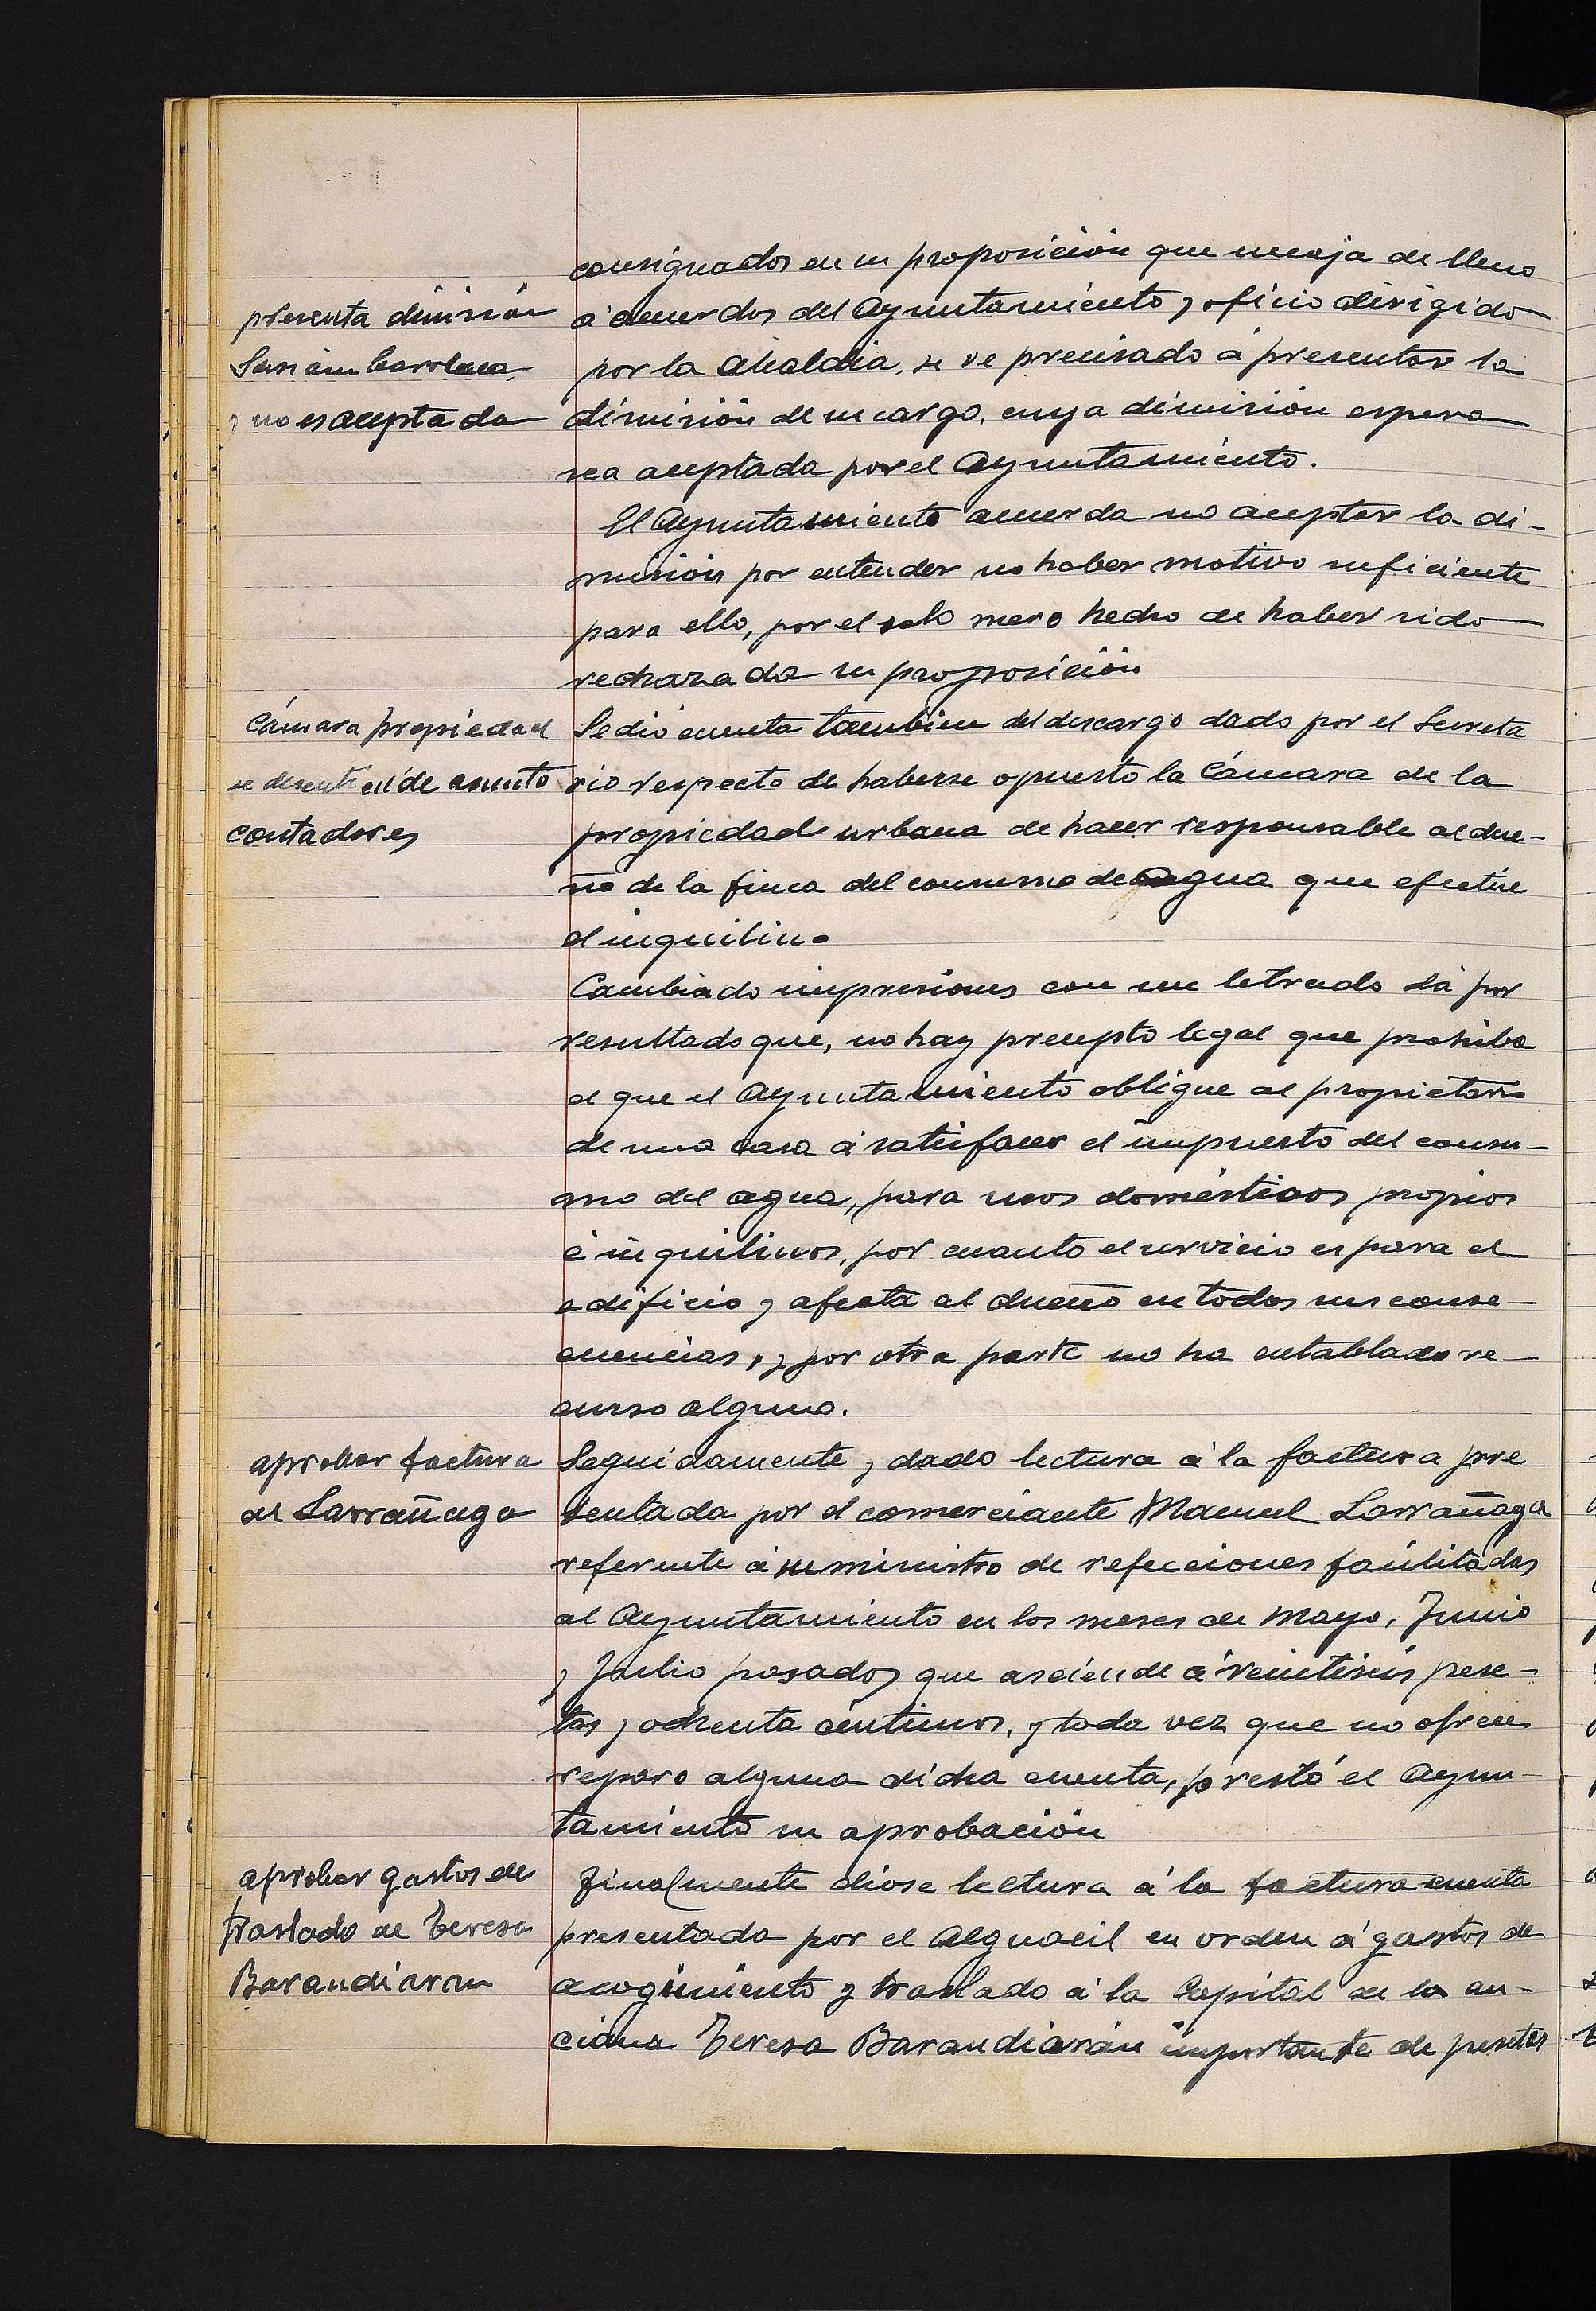 consignados en su proposición que encaja de lleno
presenta dimisión
Sasiain Barrolaza
y no es aceptada
á acuerdos del Ayuntamiento y oficio dirigido
por la Alcaldia, se ve precisado á presentar la
dimisión de su cargo, cuya dimisión espera
sea aceptada por el Ayuntamiento.
El Ayuntamiento acuerda no aceptar la di-
misión por entender no haber motivo suficiente
para ello, por el solo mero hecho de haber sido
rechazada su proposición
Cámara propiedad
se desenti el de asunto
contadores
Se dió cuenta tambien del descargo dado por el Secreta
rio respecto de haberse opuesto la Cámara de la
propiedad urbana de hacer responsable al due-
ño de la finca del consumo de agua que efectúe
el inquilino
Cambiado impresiones con un letrado dá por
resultado que, no hay precepto legal que prohiba
el que el Ayuntamiento obligue al propietario
de una casa á satisfacer el impuesto del consu-
mo del agua, para usos domésticos propios
é inquilinos, por cuanto el servicio es para el
edificio y afecta al dueño en todas sus conse-
cuencias, y por otra parte no ha entablado re-
curso alguno.
aprobar factura
de Larrañaga
Seguidamente y dado lectura á la factura pre
sentada por el comerciante Manuel Larrañaga
referente á suministro de refecciones facilitadas
al Ayuntamiento en los meses de Mayo, Junio
y Julio pasados que asciende á veintiseis pese-
tas y ochenta céntimos, y toda vez que no ofrece
reparo alguno dicha cuenta, prestó el Ayun-
tamiento su aprobación
aprobar gastos de
traslado de Teresa
Barandiaran
Finalmente dióse lectura á la factura cuenta
presentada por el Alguacil en orden á gastos de
acogimiento y traslado á la Capital de la an-
ciana Teresa Barandiarán importante de pesetas